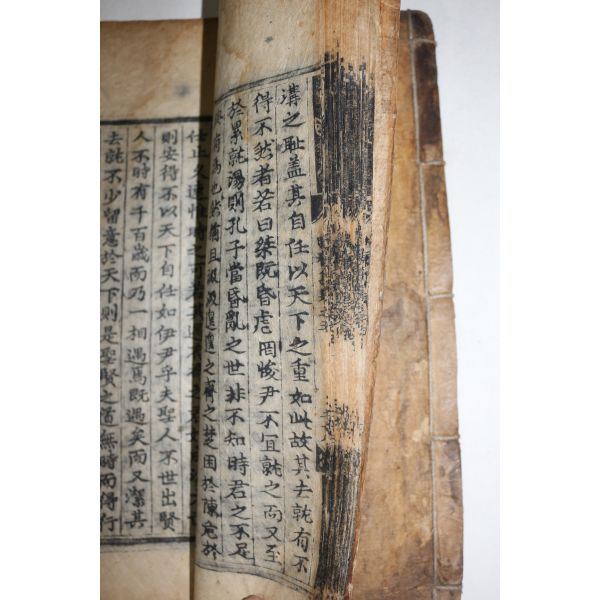 溝之耻盖其自任以天下之重如此故其去就有不
得不然者若曰桀既昏虐罔悛尹不宜就之而又至
於累就湯則孔子當昏亂之世非不知時君之不足
有爲也然猶且汲汲遑遑之齊之楚困於陳危於
仕止久速惟時之可若
則安得不以天下自任如伊尹乎夫聖人不世出賢
人不時有千百歲而乃一相遇焉既遇矣而又潔其
去就不少留意於天下則是聖賢之道無時而得行